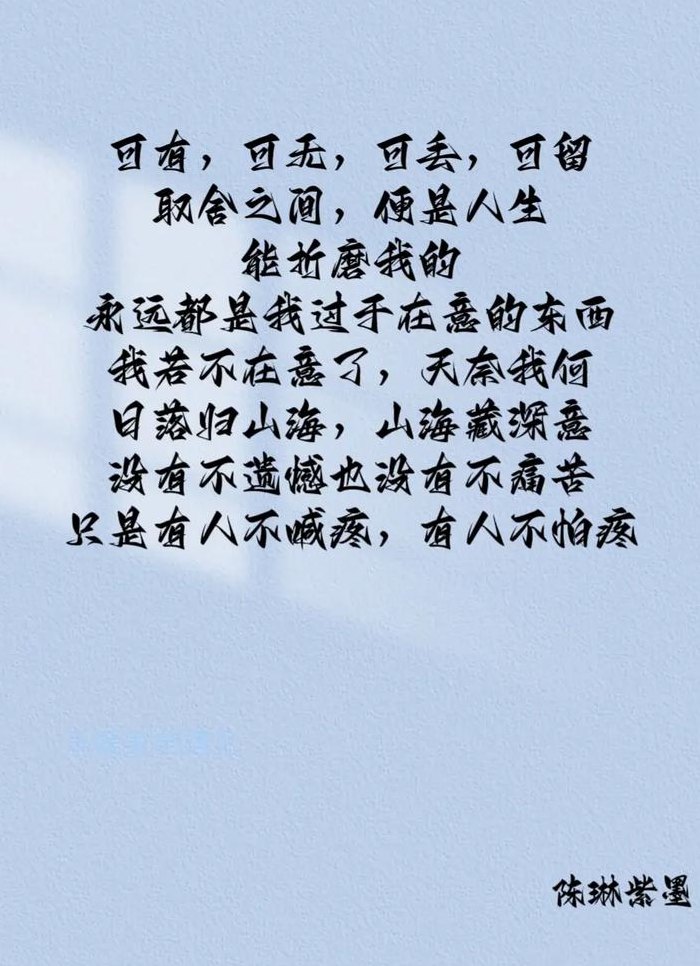 可有，可无，可丢，可留
取舍之间，便是人生
能折磨我的
永远都是我过于在意的东西
我若不在意了，天奈我何
日落归山海，山海藏深意
没有不遗憾也没有不痛苦
只是有人不喊疼，有人不怕疼
陈琳紫墨